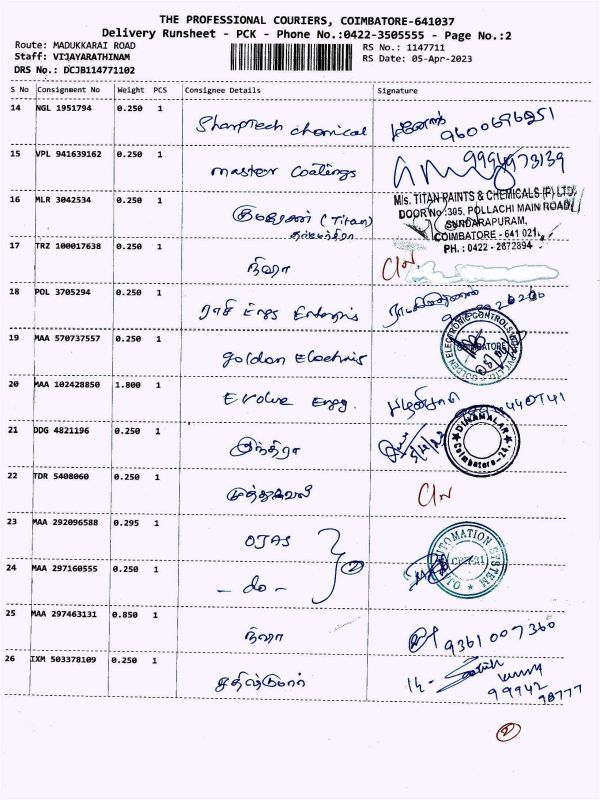 THE PROFESSIONAL COURIERS, COIMBATORE-641037
Delivery Runsheet - PCK - Phone No.:0422-3505555 - Page No.:2
Route: MADUKKARAI ROAD RS No.: 1147711
Staff: VIJAYARATHINAM RS Date: 05-Apr-2023
DRS No.: DCJB114771102
S No Consignment No Weight PCS Consignee Details Signature
14 NGL 1951794 0.250 1 Sharptech chemical 9600696251
15 VPL 941639162 0.250 1 Master Coatings 9994973139
16 MLR 3042534 0.250 1 (Titan)
M/s. TITAN PAINTS & CHEMICALS (P) LTD.
DOOR No.:305, POLLACHI MAIN ROAD
SUNDARAPURAM,
COIMBATORE - 641 021.
PH. : 0422 - 2672894
17 TRZ 100017638 0.250 1 நிலா
18 POL 3705294 0.250 1 ராசி Engg Enterpris
19 MAA 570737557 0.250 1 golden Electronic
GOLDEN ELECTRONIC CONTROLS
COIMBATORE
20 MAA 102428850 1.800 1 Evolve Engg.
21 DDG 4821196 0.250 1 இந்திரா
DINAMALAR
Coimbatore-24
22 TDR 5408060 0.250 1 முத்துவேல்
23 MAA 292096588 0.295 1 OJAS
24 MAA 297160555 0.250 1 - do - 2
AUTOMATION SYSTEM
CBE-21
25 MAA 297463131 0.850 1 நிலா 9361007360
26 IXM 503378109 0.250 1 99942
78777
2